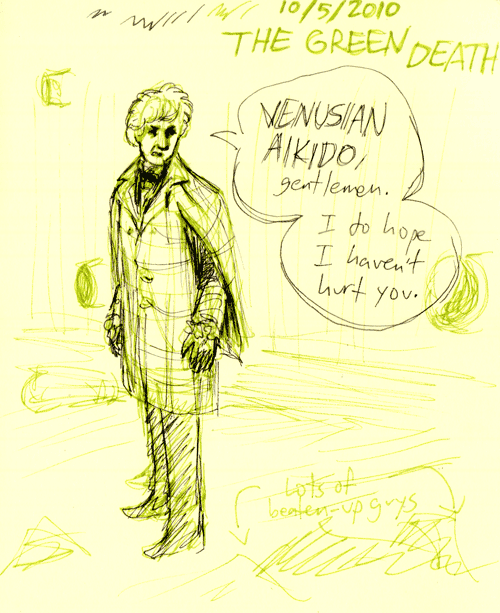 10/5/2010
THE GREEN DEATH
VENUSIIAN
AIKIDO,
gentlemen.
I do hope
I haven't
hurt you.
Lots of
beaten-up guys